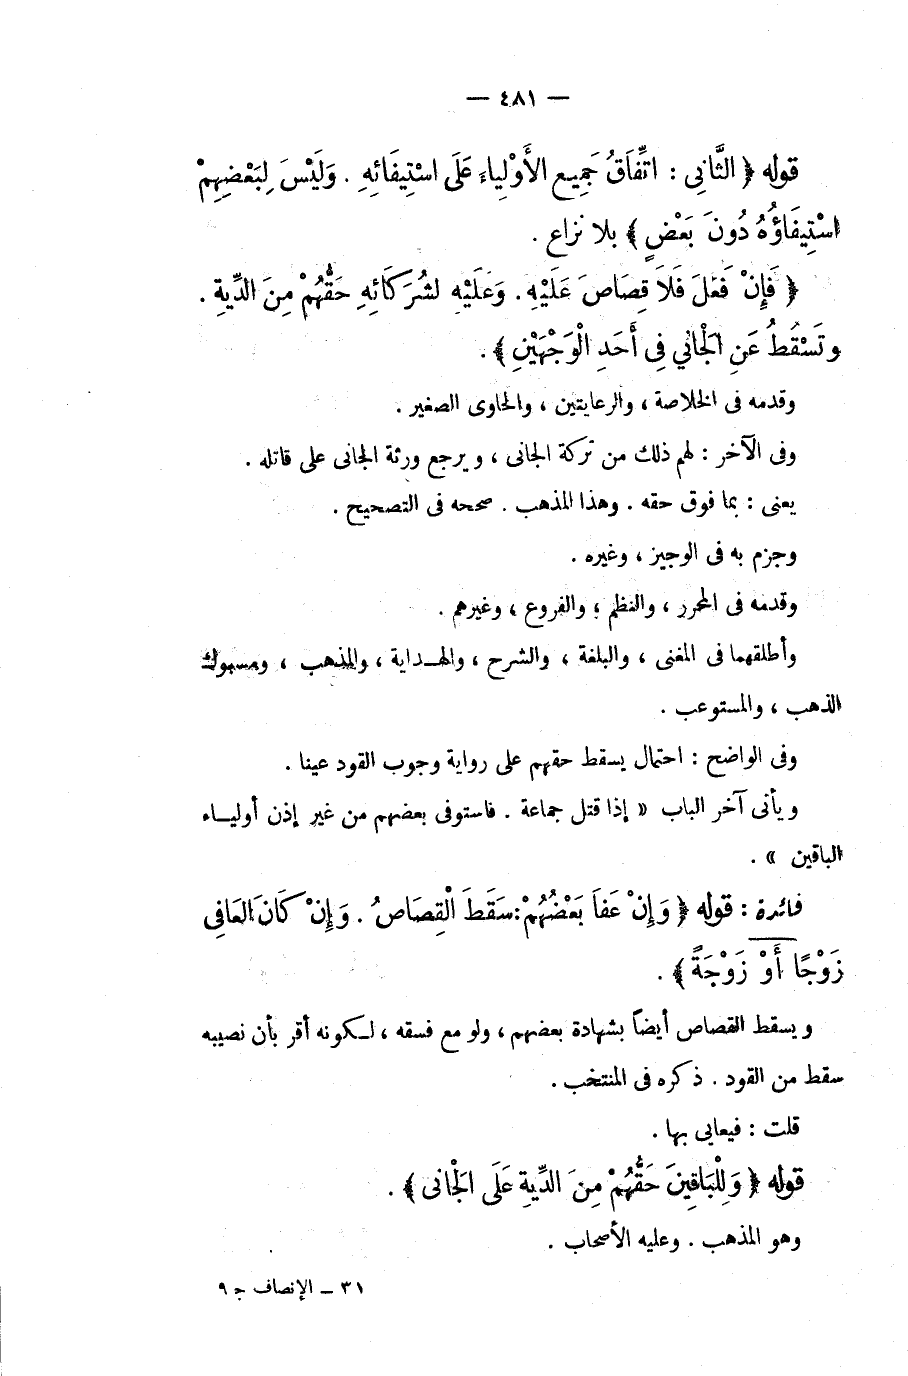 — ٤٨١ —
قوله ﴿ الثَّانِى : اتِّفَاقُ جَمِيعِ الأَوْلِياءِ عَلَى اسْتِيفَائِهِ . وَلَيْسَ لِبَعْضِهِمْ
اسْتِيفَاؤُهُ دُونَ بَعْضٍ ﴾ بلا نزاع .
﴿ فَإِنْ فَعَلَ فَلاَ قِصَاصَ عَلَيْهِ . وَعَلَيْهِ لشُرَكَائِهِ حَقُّهُمْ مِنَ الدِّيةِ .
وتَسْقُطُ عَنِ الْجَاني فِى أَحَدِ الْوَجْهَيْنِ ﴾ .
وقدمه فى الخلاصة ، والرعايتين ، والحاوى الصغير .
وفى الآخر : لهم ذلك من تركة الجانى ، ويرجع ورثة الجانى على قاتله .
يعنى : بما فوق حقه . وهذا المذهب . صححه فى التصحيح .
وجزم به فى الوجيز ، وغيره .
وقدمه فى المحرر ، والنظم ، والفروع ، وغيرهم .
وأطلقهما فى المغنى ، والبلغة ، والشرح ، والهـداية ، والمذهب ، ومسبوك
الذهب ، والمستوعب .
وفى الواضح : احتمال يسقط حقهم على رواية وجوب القود عينا .
ويأتى آخر الباب « إذا قتل جماعة . فاستوفى بعضهم من غير إذن أوليـاء
الباقين » .
فائدة : قوله ﴿ وَإِنْ عَفاَ بَعْضُهُمْ : سَقَطَ الْقِصَاصُ . وَإِنْ كَانَ العَافِى
زَوْجًا أَوْ زَوْجَةً ﴾ .
ويسقط القصاص أيضاً بشهادة بعضهم ، ولو مع فسقه ، لـكونه أقر بأن نصيبه
سقط من القود . ذكره فى المنتخب .
قلت : فيعايى بها .
قوله ﴿ وَلِلْبَاقِينَ حَقُّهُمْ مِنَ الدِّيةِ عَلَى الْجَانى ﴾ .
وهو المذهب . وعليه الأصحاب .
٣١ ــ الإنصاف جـ ٩